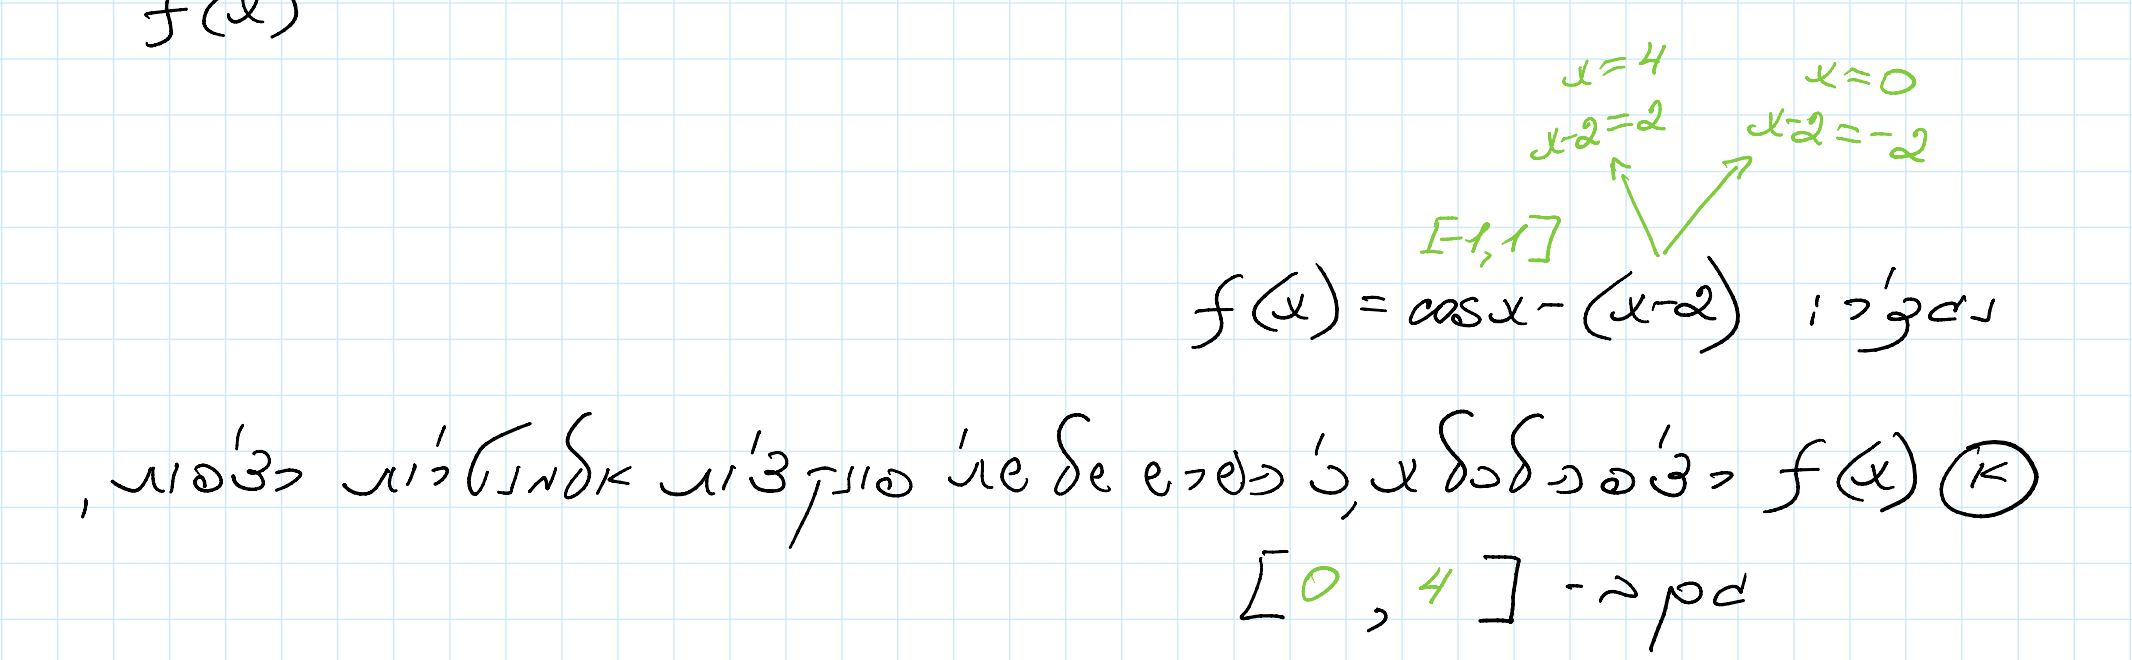 f(x)
x=4 x=0
x-2=2 x-2=-2
[-1,1]
נגדיר: f(x) = cosx-(x-2)
(א) f(x) רציפה לכל x, כי הפרש של שתי פונקציות אלמנטריות רציפות,
[0, 4]